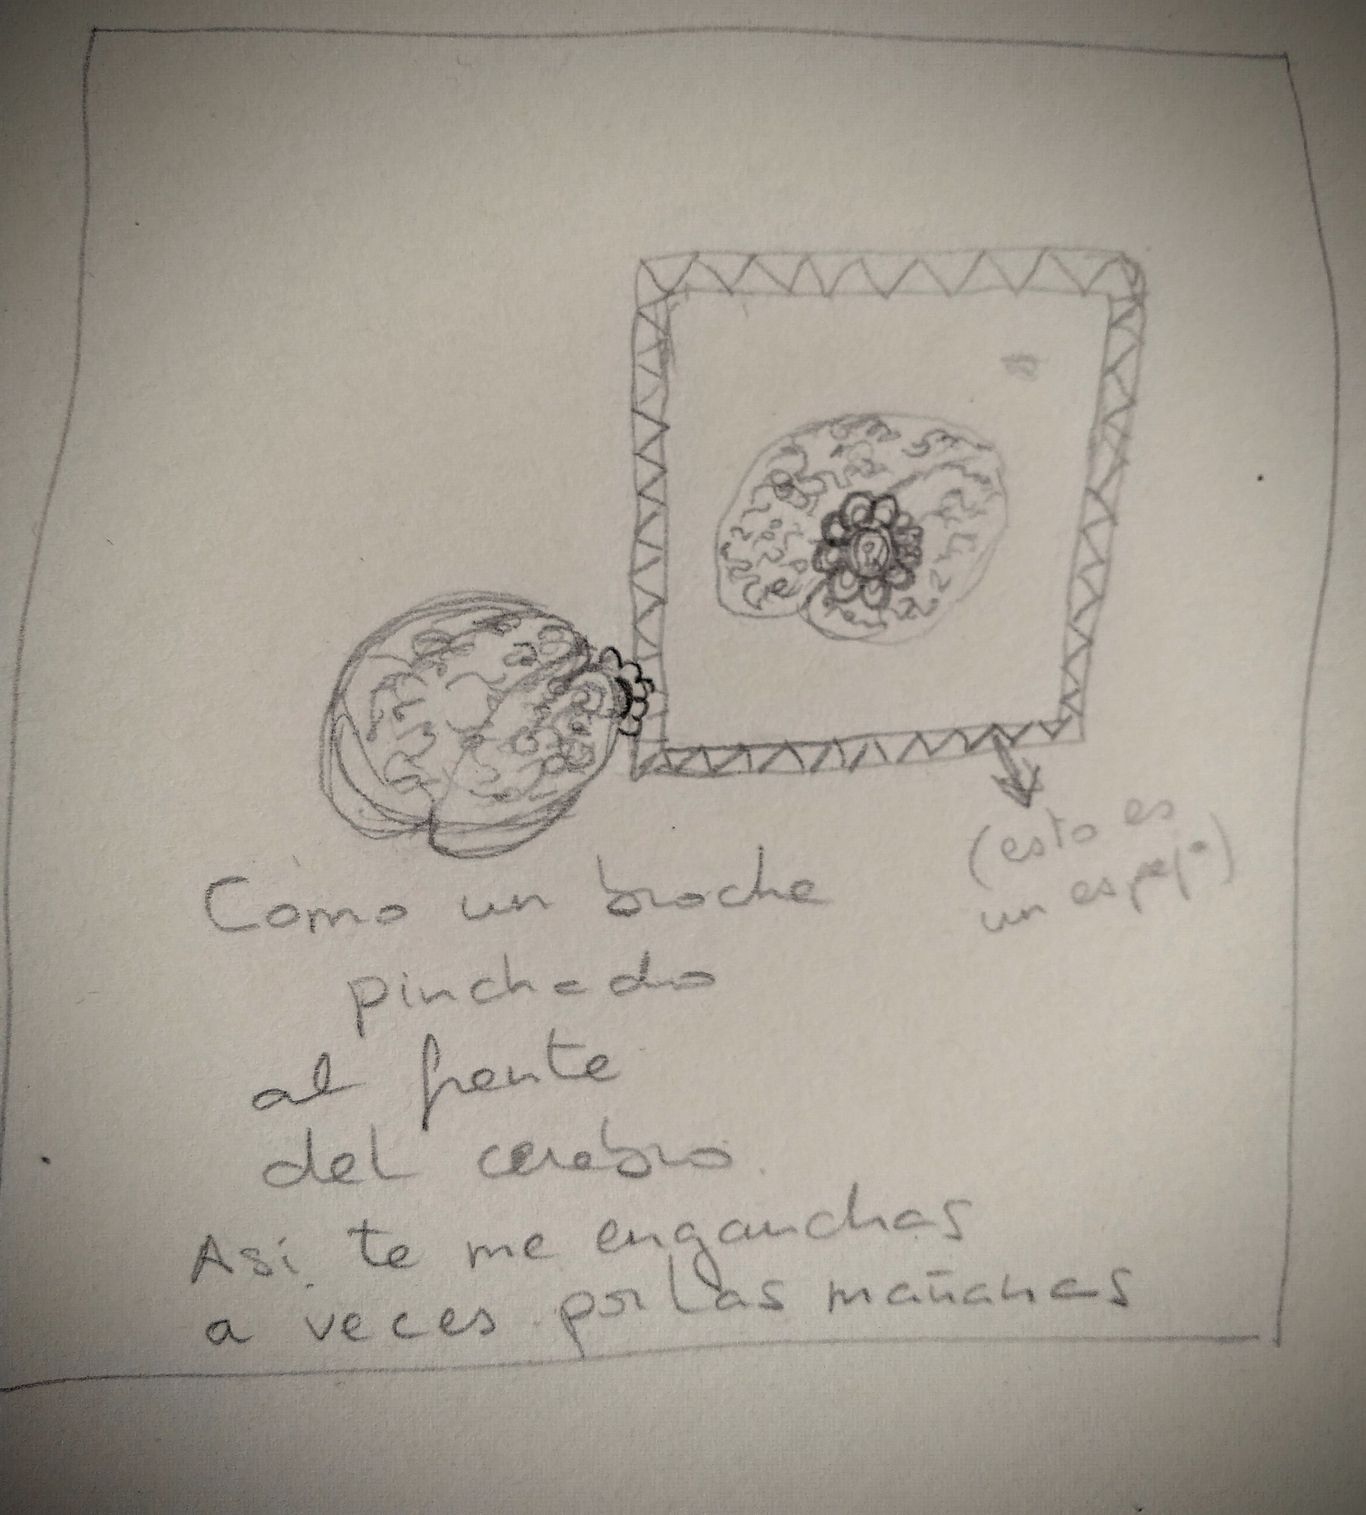 (esto es
un espejo)
Como un broche
pinchado
al frente
del cerebro.
Asi te me enganchas
a veces por las mañanas